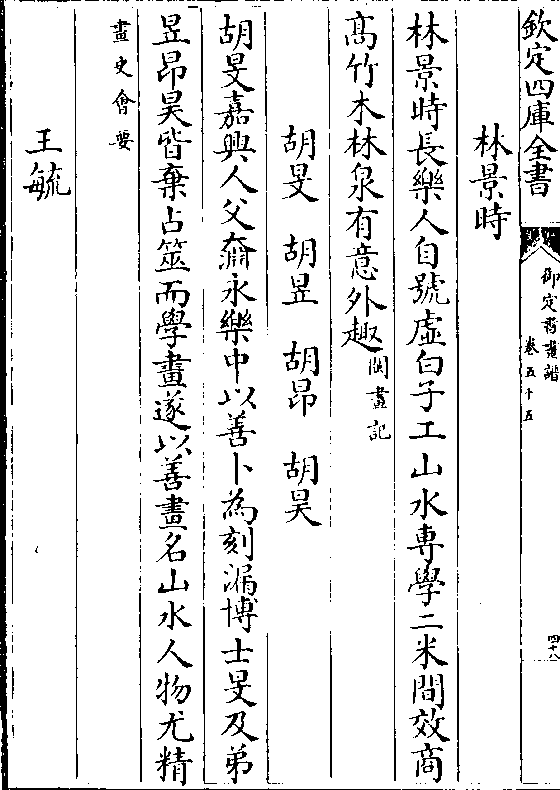 欽定四庫全書
御定書畫譜
卷五十五
四十八
林景時
林景時長樂人自號虛白子工山水專學二米間效商
髙竹木林泉有意外趣閩畫記
胡旻 胡昱 胡昂 胡昊
胡旻嘉興人父奫永樂中以善卜為刻漏博士旻及弟
昱昂昊皆棄占筮而學畫遂以善畫名山水人物尤精
畫史會要
王毓